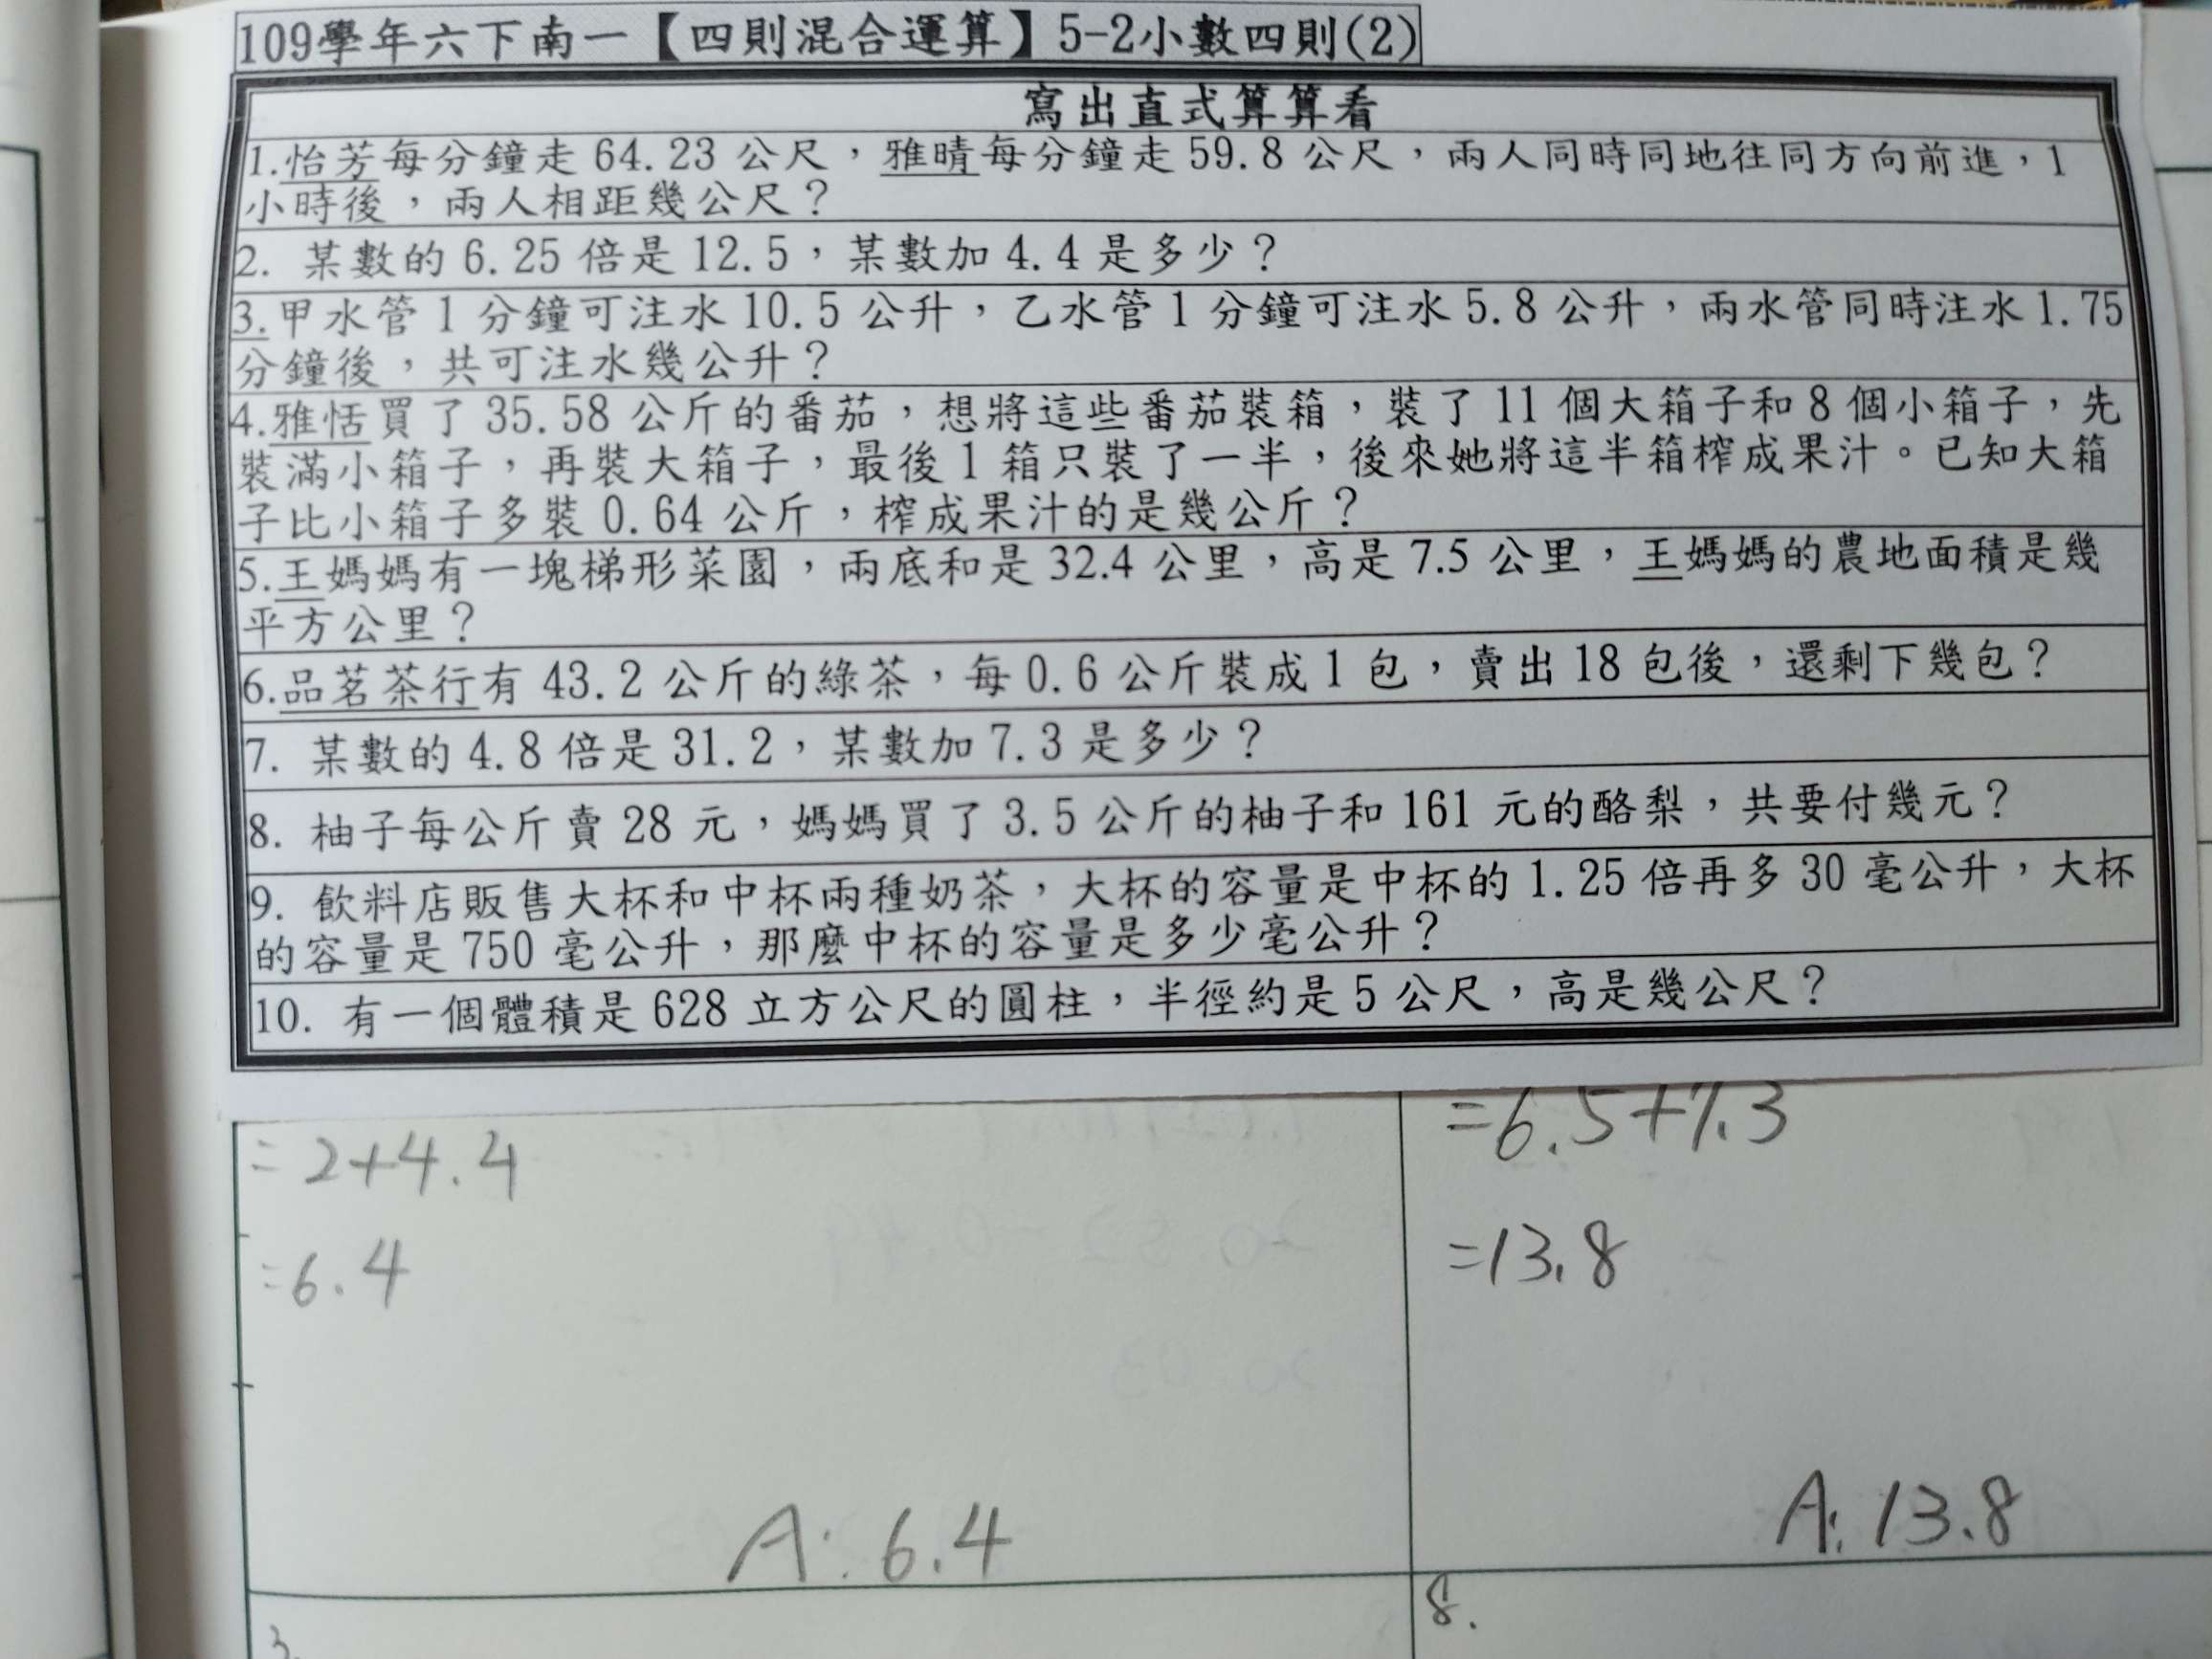 109學年六下南一【四則混合運算】5-2小數四則(2)
寫出直式算算看
1.怡芳每分鐘走 64.23 公尺，雅晴每分鐘走 59.8 公尺，兩人同時同地往同方向前進，1
小時後，兩人相距幾公尺？
2. 某數的 6.25 倍是 12.5，某數加 4.4 是多少？
3.甲水管 1 分鐘可注水 10.5 公升，乙水管 1 分鐘可注水 5.8 公升，兩水管同時注水 1.75
分鐘後，共可注水幾公升？
4.雅恬買了 35.58 公斤的番茄，想將這些番茄裝箱，裝了 11 個大箱子和 8 個小箱子，先
裝滿小箱子，再裝大箱子，最後 1 箱只裝了一半，後來她將這半箱榨成果汁。已知大箱
子比小箱子多裝 0.64 公斤，榨成果汁的是幾公斤？
5.王媽媽有一塊梯形菜園，兩底和是 32.4 公里，高是 7.5 公里，王媽媽的農地面積是幾
平方公里？
6.品茗茶行有 43.2 公斤的綠茶，每 0.6 公斤裝成 1 包，賣出 18 包後，還剩下幾包？
7. 某數的 4.8 倍是 31.2，某數加 7.3 是多少？
8. 柚子每公斤賣 28 元，媽媽買了 3.5 公斤的柚子和 161 元的酪梨，共要付幾元？
9. 飲料店販售大杯和中杯兩種奶茶，大杯的容量是中杯的 1.25 倍再多 30 毫公升，大杯
的容量是 750 毫公升，那麼中杯的容量是多少毫公升？
10. 有一個體積是 628 立方公尺的圓柱，半徑約是 5 公尺，高是幾公尺？
=2+4.4
=6.4
A:6.4
=6.5+7.3
=13.8
A:13.8
3.
8.